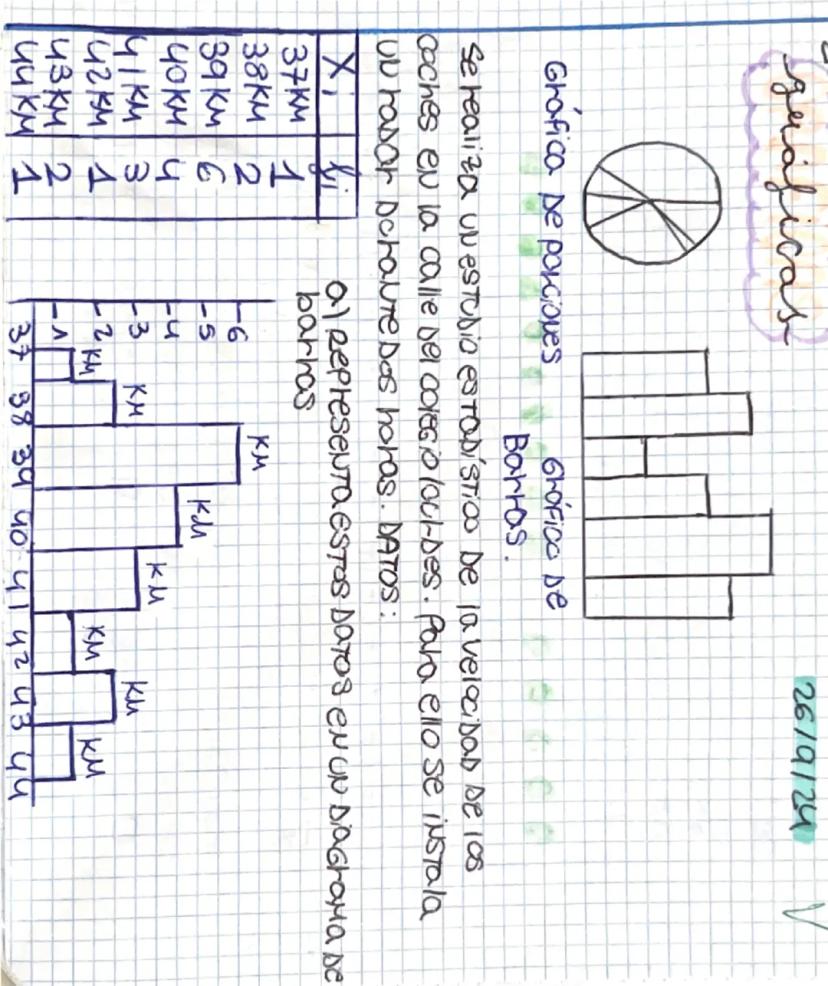 gráficas
26/9/24
Gráfica de porciones
Gráfico de
Barras.
Se realiza un estudio estadístico de la velocidad de los
coches en la calle del colegio
Para ello se instala
un radar durante dos horas. DATOS:
Xi fi
37KM 1
38KM 2
39KM 6
40KM 4
41KM 3
42KM 1
43KM 2
44KM 1
a) Representa estos datos en un diagrama de
barras
6
5
4
3
2
1
KM KM KM KM KM KM KM KM
37 38 39 40 41 42 43 44